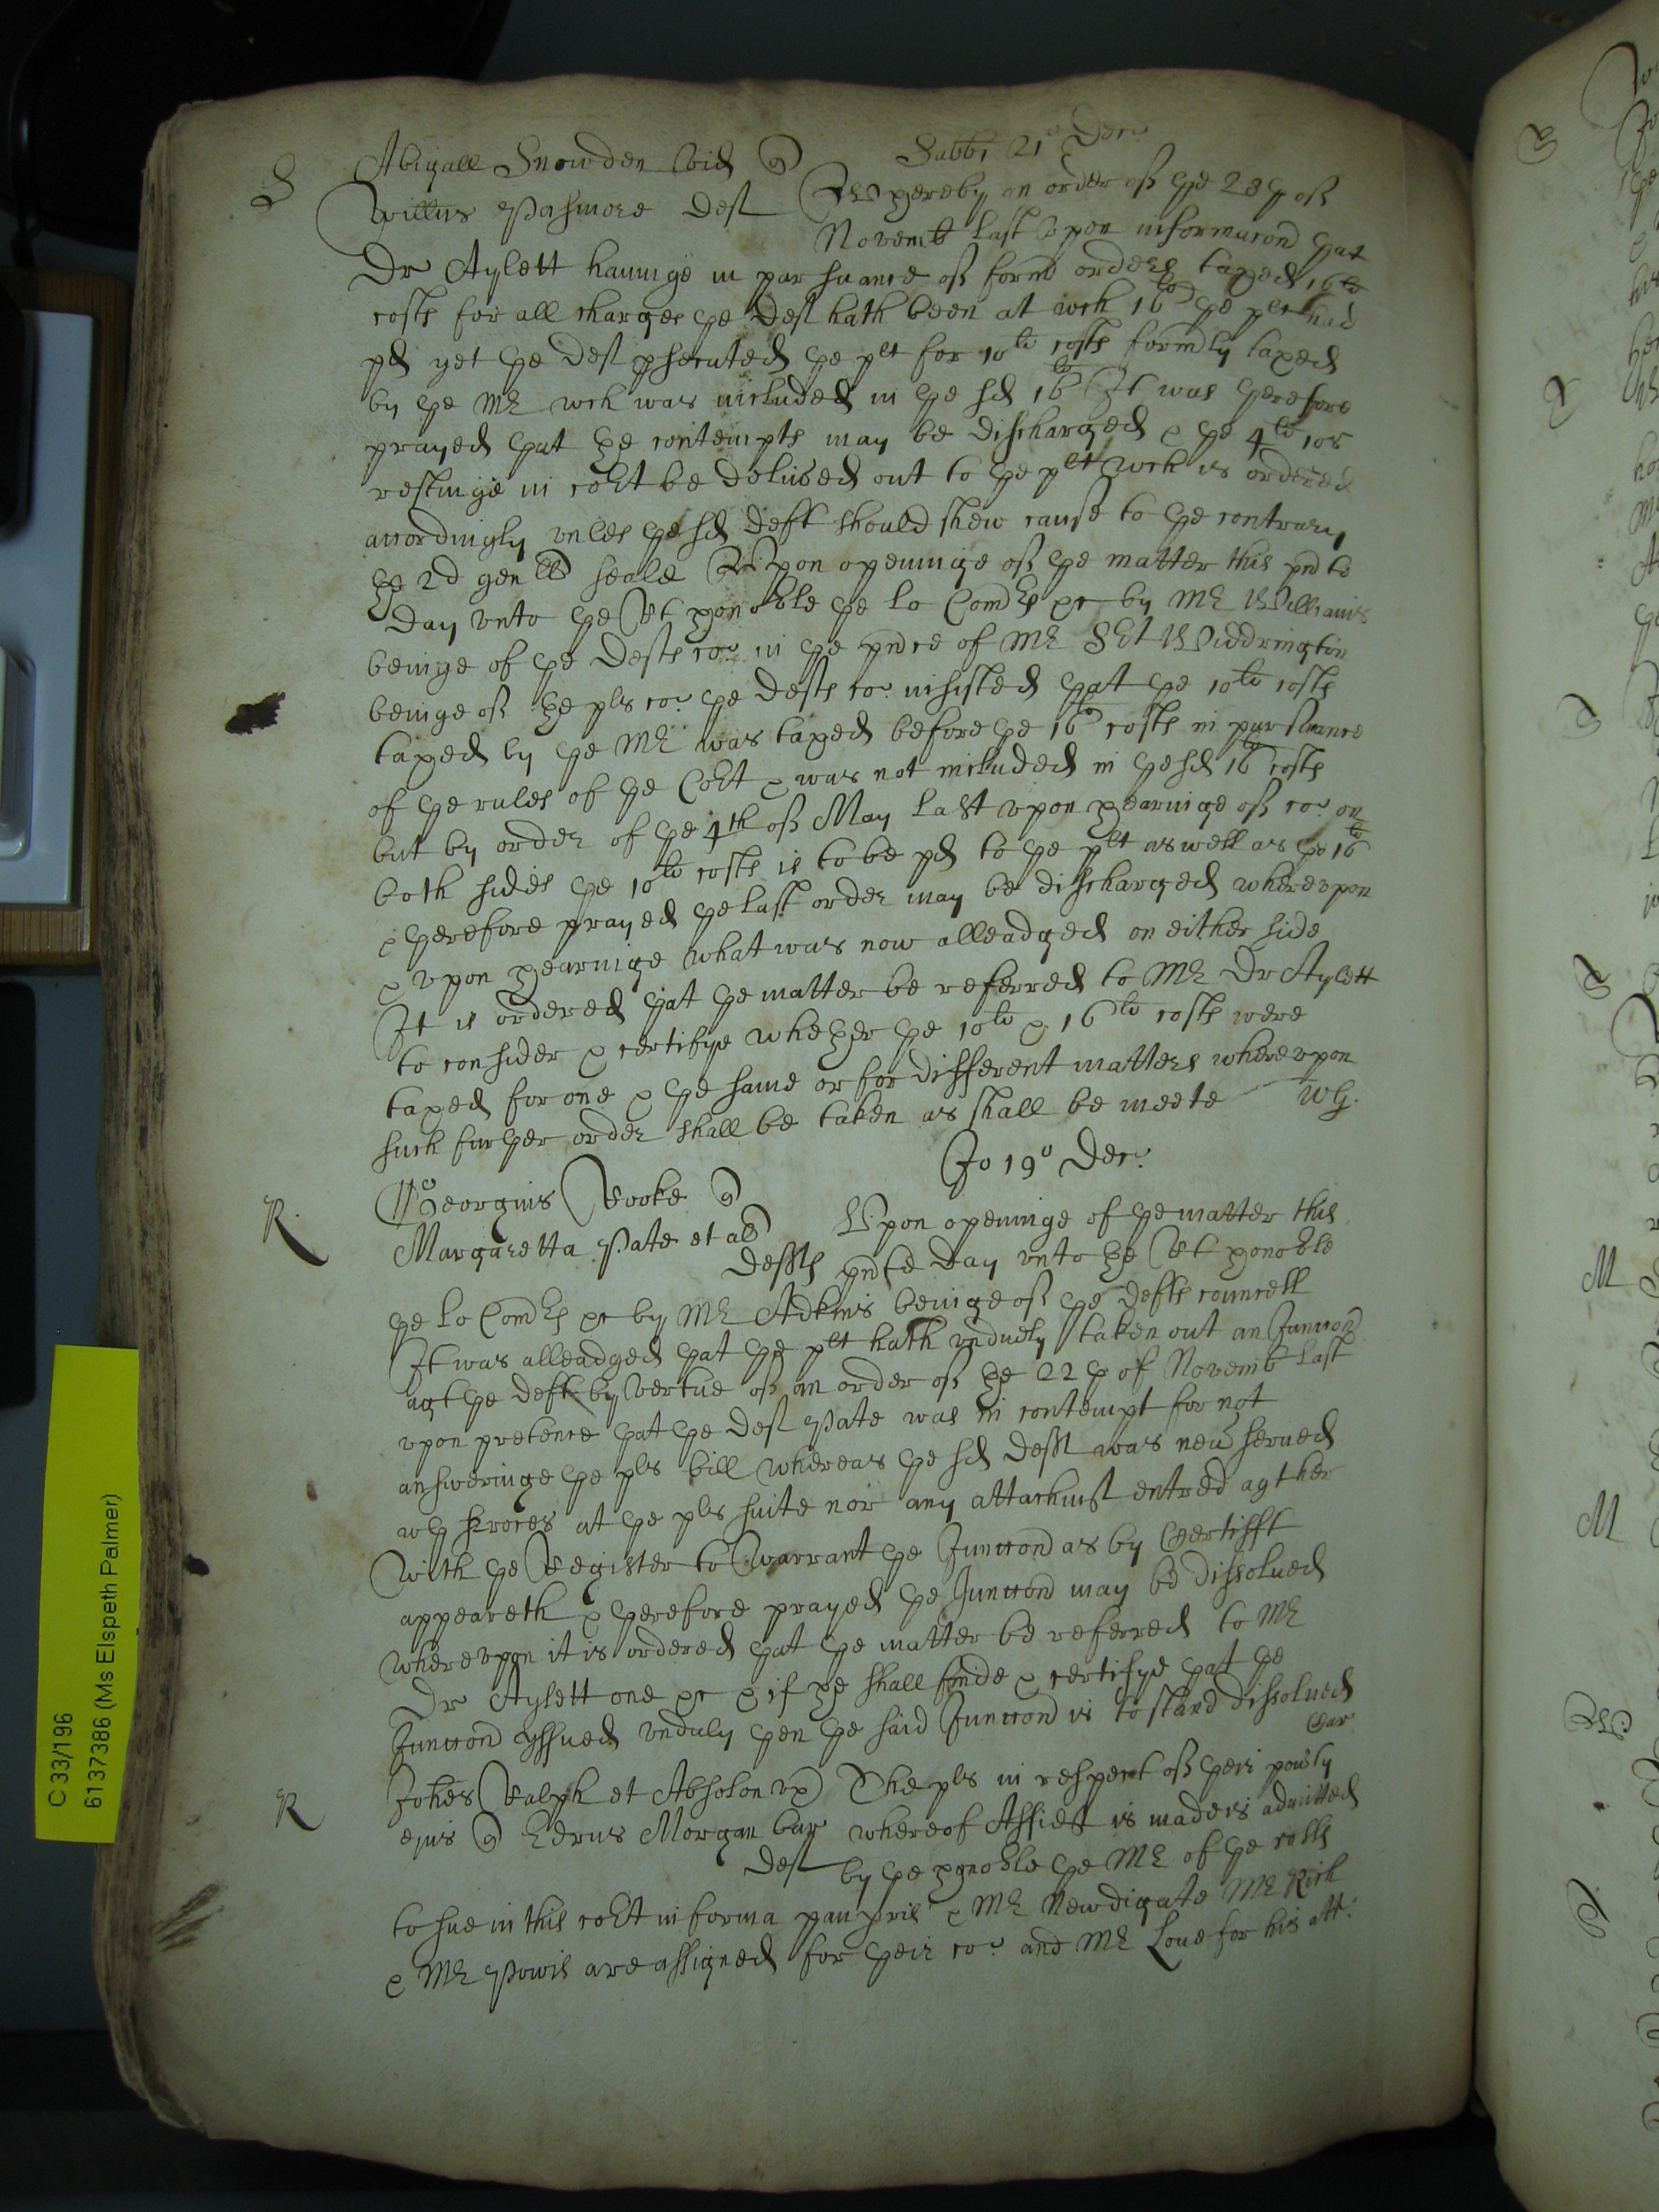 Sabbi 21o Decr
S Abigall Snowden vid q
Willus Pashmore deft Whereby an order of the 28th of
Novemb last vpon informacond that
Dr Aylett hauinge in pursuance of formr orders taxed 16li
costs for all charges the deft hath been at wch 16li the plt had
pd yet the deft psecuted the plt for 10li costs formrly taxed
by the Mr wch was included in the sd 16li It was therefore
prayed that the contempts may be discharged & the 4li 10s
restinge in cort be deliûed out to the plt wch is ordered
accordingly vnles the sd deft should shew cause to the contrary
the 2d genall seale Vpon openinge of the matter this pnte
day vnto the Rt honoble the lo Comrs &c by Mr Williams
beinge of the defts co: in the pnce of Mr Sert Widdrington
beinge of the pls co: the defts co: insisted that the 10li costs
taxed by the Mr was taxed before the 16li costs in pursuance
of the rules of the Cort & was not included in the sd 16li costs
but by order of the 4th of May last vpon hearinge of co: on
both sides the 10li costs is to be pd to the plt as well as the 16li
& therefore prayed the last order may be discharged wherevpon
& vpon hearinge what was now alleadged on either side
It is ordered that the matter be referred to Mr Dr Aylett
to consider & certifye whether the 10li & 16li costs were
taxed for one & the same or for different matters wherevpon
such further order shall be taken as shall be meete WG.
Jo 19o Decr.
R. Georgius Cooke q
Margaretta Pate et al Vpon openinge of the matter this
defts pnte day vnto the Rt honoble
the lo Comrs &c by Mr Adkins beinge of the defts councell
It was alleadged that the plt hath vnduely taken out an Junccond
agt the deft by vertue of an order of the 22th of Novemb last
vpon pretence that the deft Pate was in contempt for not
answeringe the pls bill whereas the sd deft was neû serued
wth proces at the pls suite nor any attachmt entred agt her
with the Register to warrant the Junccond as by Certifft
appeareth & therefore prayed the Junccond may be dissolued
wherevpon it is ordered that the matter be referred to Mr
Dr Aylett one &c & if he shall finde & certifye that the
Junccond yssued vnduly then the said Junccond is to stand dissolued
Car
R Johes Ralph et Absolon vx The pls in respect of their pouty
ejus q Edrus Morgan bar whereof Affidt is made is admitted
deft by the honoble the Mr of the rolls
to sue in this cort in forma paupris & Mr Newdigate Mr Rich
& Mr Powis are assigned for their co: and Mr Loue for his att:
C 33/196
6137386 (Ms Elspeth Palmer)